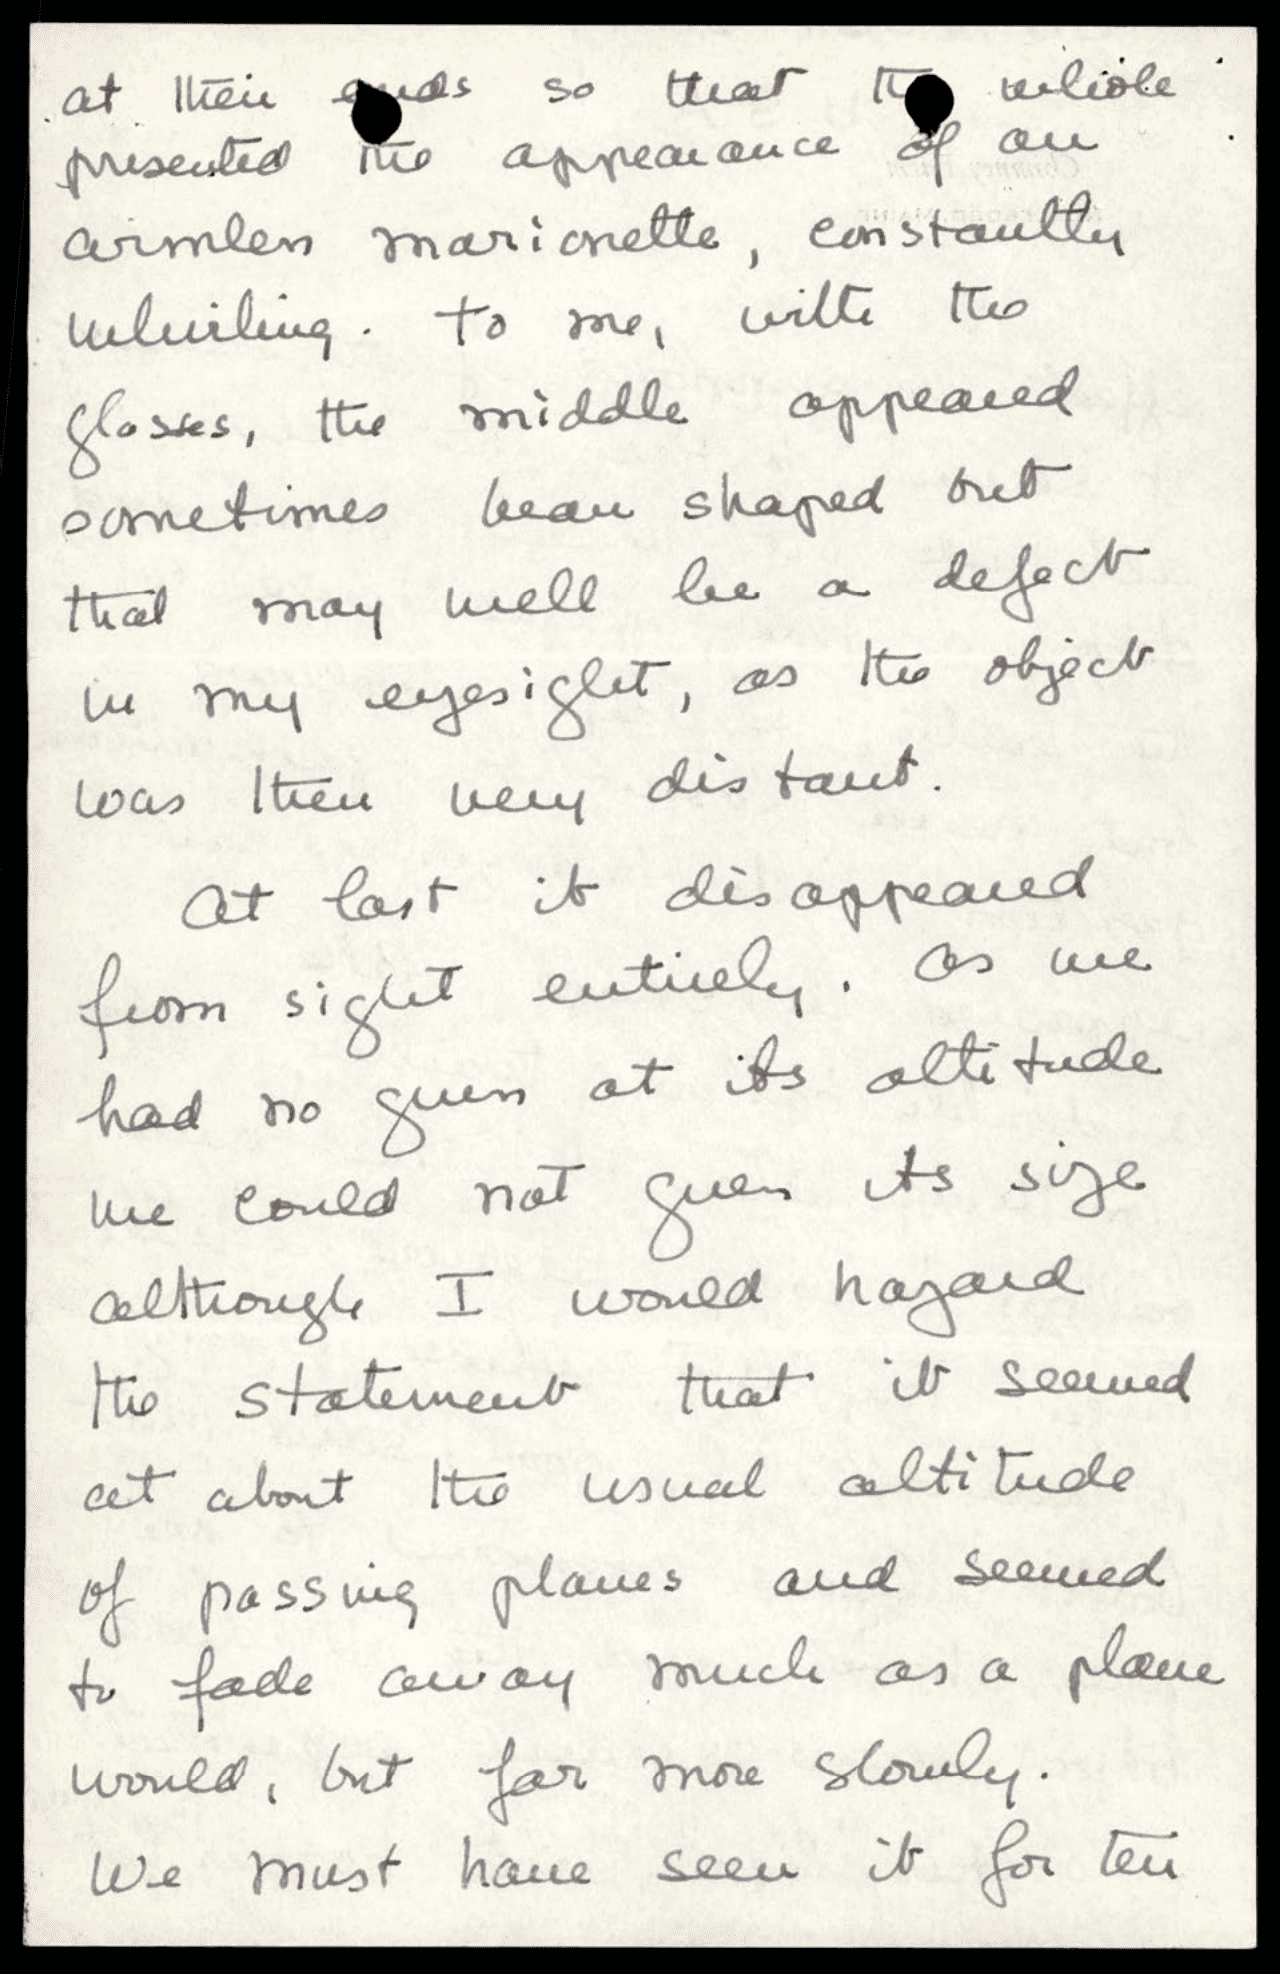 at their ends so that the whole
presented the appearance of an
armless marionette, constantly
whirling. To me, with the
glasses, the middle appeared
sometimes bean shaped but
that may well be a defect
in my eyesight, as the object
was then very distant.
At last it disappeared
from sight entirely. As we
had no guess at its altitude
we could not guess its size
although I would hazard
the statement that it seemed
at about the usual altitude
of passing planes and seemed
to fade away much as a plane
would, but far more slowly.
We must have seen it for ten